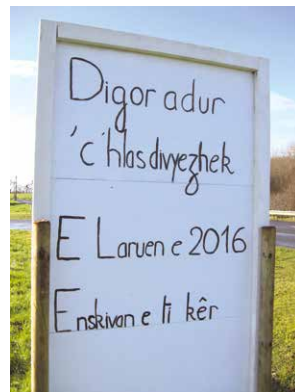 Digor adur
'c'hlas divyezhek
E Laruen e 2016
Enskivan e ti kêr